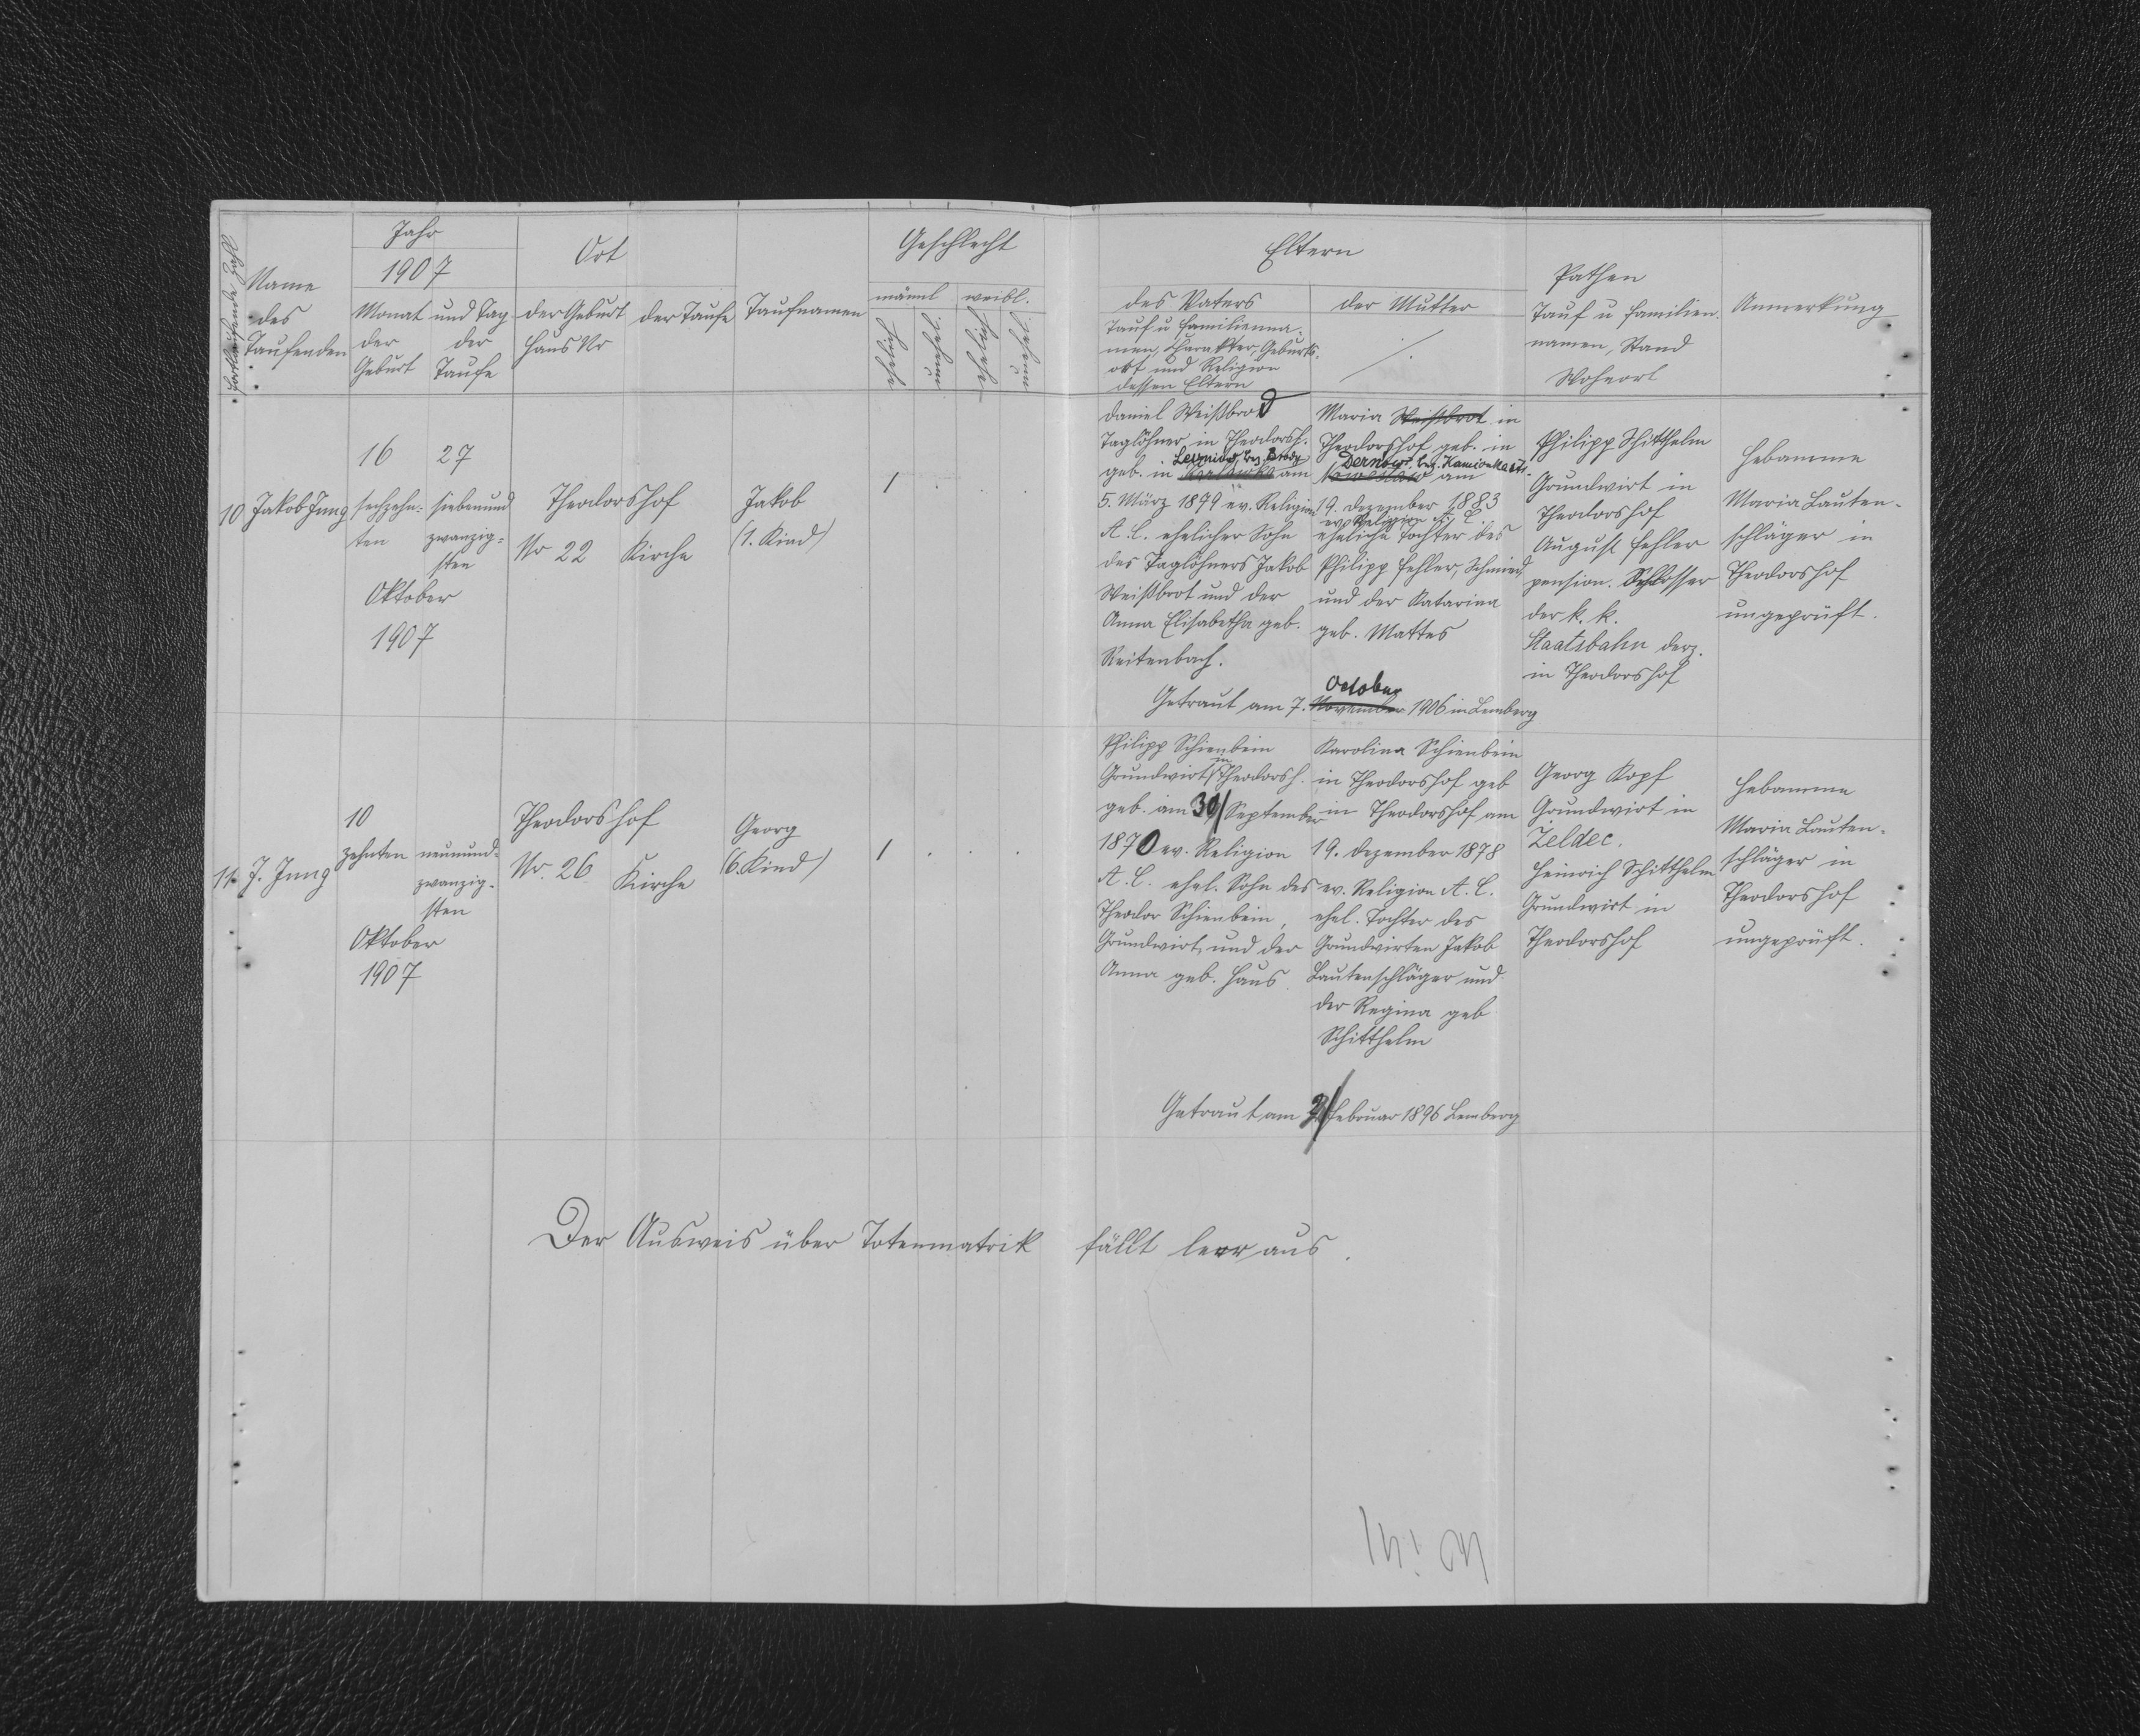 Fortlaufende Zahl
Name
des
Taufenden
Jahr
1907
Monat und Tag
der der
Geburt Taufe
Ort
der Geburt der Taufe
Haus Nr
Taufnamen
Geschlecht
männl weibl.
ehelich
unehel.
ehelich
unehel.
Eltern
des Vaters
Tauf u Familienna-
men, Charakter, Geburts-
ort und Religion
dessen Eltern
der Mutter
Pathen
Tauf u Familien-
namen, Stand
Wohnort
Anmerkung
10 Jakob Jung
16 27
sechzehn- siebenund
ten zwanzig-
sten
Oktober
1907
Theodorshof
Nr 22 Kirche
Jakob
(1. Kind)
1 . . .
Daniel Weißbrod
Taglöhner in Theodorsh.
bez. Brody
geb. in am
5. März 1879 ev. Religion
A. C. ehelicher Sohn
des Taglöhners Jakob
Weißbrot und der
Anna Elisabetha geb.
Reitenbach.
Maria Weißbrot in
Theodorshof geb. in
Dernów bez. Kamionka
am
19. Dezember 1883
ev. Religion A. C.
eheliche Tochter des
Philipp Fehler, Schmied
und der Katarina
geb. Mattes
October
Getraut am 7. November 1906 in Lemberg
Philipp Schitthelm
Grundwirt in
Theodorshof
August Fehler
pension. Schlosser
der k. k.
Staatsbahn derz.
in Theodorshof
Hebamme
Maria Lauten-
schläger in
Theodorshof
ungeprüft.
11. J. Jung
10
zehnten neunund-
zwanzig-
sten
Oktober
1907
Theodorshof
Nr. 26 Kirche
Georg
(6. Kind)
1 . . .
Philipp Schienbein
in
Grundwirt Theodorsh.
geb. am 30/ September
1870 ev. Religion
A. C. ehel. Sohn des
Theodor Schienbein,
Grundwirt und der
Anna geb. Haus.
Karolina Schienbein
in Theodorshof geb
in Theodorshof am
19. Dezember 1878
ev. Religion A. C.
ehel. Tochter des
Grundwirten Jakob
Lautenschläger und
der Regina geb
Schitthelm
Getraut am Februar 1896 Lemberg
Georg Kopf
Grundwirt in
Zeldec.
Heinrich Schitthelm
Grundwirt in
Theodorshof
Hebamme
Maria Lauten-
schläger in
Theodorshof
ungeprüft.
Der Ausweis über Totenmatrik fällt leer aus.